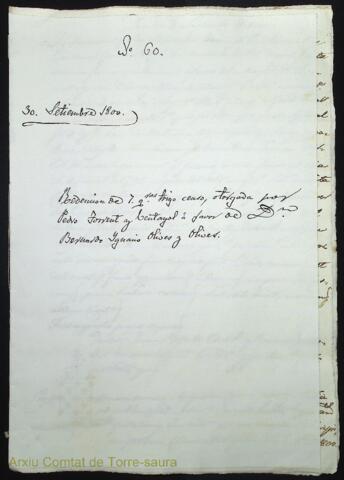 Nº 60.
30. Setiembre 1800.
Redencion de 7. qras trigo censo, otorgada por
Pedro Torrent y a favor de Dn
Bernardo Ignacio Olives y Olives.
Arxiu Comtat de Torre-saura